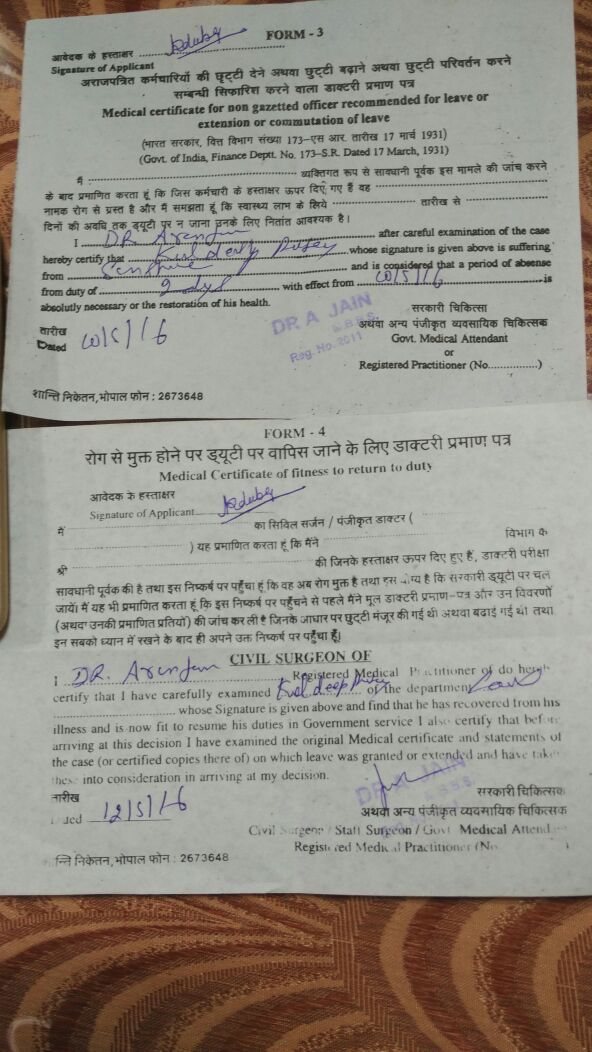 FORM - 3
आवेदक के हस्ताक्षर
Signature of Applicant
अराजपत्रित कर्मचारियों की छुट्टी देने अथवा छुट्टी बढ़ाने अथवा छुट्टी परिवर्तन करने
सम्बन्धी सिफारिश करने वाला डाक्टरी प्रमाण पत्र
Medical certificate for non gazetted officer recommended for leave or
extension or commutation of leave
(भारत सरकार, वित्त विभाग संख्या 173–एस आर. तारीख 17 मार्च 1931)
(Govt. of India, Finance Deptt. No. 173-S.R. Dated 17 March, 1931)
मैं व्यक्तिगत रूप से सावधानी पूर्वक इस मामले की जांच करने
के बाद प्रमाणित करता हूं कि जिस कर्मचारी के हस्ताक्षर ऊपर दिए गए हैं वह
नामक रोग से ग्रस्त है और मैं समझता हूं कि स्वास्थ्य लाभ के लिये तारीख से
दिनों की अवधि तक ड्यूटी पर न जाना उनके लिए नितांत आवश्यक है।
I DR. after careful examination of the case
hereby certify that whose signature is given above is suffering
from and is considered that a period of absense
from duty of with effect from is
absolutely necessary or the restoration of his health.
DR A JAIN
M.B.B.S.
Reg. No. 2011
सरकारी चिकित्सा
तारीख अथवा अन्य पंजीकृत व्यवसायिक चिकित्सक
Dated Govt. Medical Attendant
or
Registered Practitioner (No.............)
शान्ति निकेतन,भोपाल फोन : 2673648
FORM - 4
रोग से मुक्त होने पर ड्यूटी पर वापिस जाने के लिए डाक्टरी प्रमाण पत्र
Medical Certificate of fitness to return to duty
आवेदक के हस्ताक्षर
Signature of Applicant
मैं का सिविल सर्जन / पंजीकृत डाक्टर (
) यह प्रमाणित करता हूं कि मैंने विभाग के
श्री की जिनके हस्ताक्षर ऊपर दिए हुए हैं, डाक्टरी परीक्षा
सावधानी पूर्वक की है तथा इस निष्कर्ष पर पहुँचा हूं कि वह अब रोग मुक्त है तथा इस योग्य है कि सरकारी ड्यूटी पर चल
जायें। मैं यह भी प्रमाणित करता हूं कि इस निष्कर्ष पर पहुँचने से पहले मैंने मूल डाक्टरी प्रमाण–पत्र और उन विवरणों
(अथवा उनकी प्रमाणित प्रतियों) की जांच कर ली है जिनके आधार पर छुट्टी मंजूर की गई थी अथवा बढाई गई थी तथा
इन सबको ध्यान में रखने के बाद ही अपने उक्त निष्कर्ष पर पहुँचा हूँ।
CIVIL SURGEON OF
I DR. Registered Medical Practitioner of do hereby
certify that I have carefully examined of the department
whose Signature is given above and find that he has recovered from his
illness and is now fit to resume his duties in Government service I also certify that before
arriving at this decision I have examined the original Medical certificate and statements of
the case (or certified copies there of) on which leave was granted or extended and have taken
these into consideration in arriving at my decision.
DR A JAIN
M.B.B.S.
तारीख सरकारी चिकित्सक
Dated 12/5/16 अथवा अन्य पंजीकृत व्यवसायिक चिकित्सक
Civil Surgeon / Staff Surgeon / Govt Medical Attend
Registered Medical Practitioner (No.
न्ति निकेतन,भोपाल फोन : 2673648